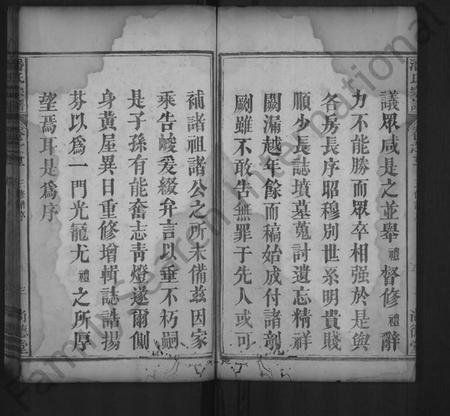 議眾咸是之並舉禮督修禮辭
力不能勝而眾卒相强於是與
各房長序昭穆別世系明貴賤
順少長誌墳墓蒐討遺忘精詳
闕漏越年餘而稿始成付諸剞
劂雖不敢告無罪于先人或可
補諸祖諸公之所未備茲因家
乘告峻爰綴弁言以垂不朽嗣
是子孫有能奮志青燈遂爾側
身黄屋異日重修增輯誌誥揚
芬以爲一門光寵尤禮之所厚
望焉耳是爲序
FamilySearch International